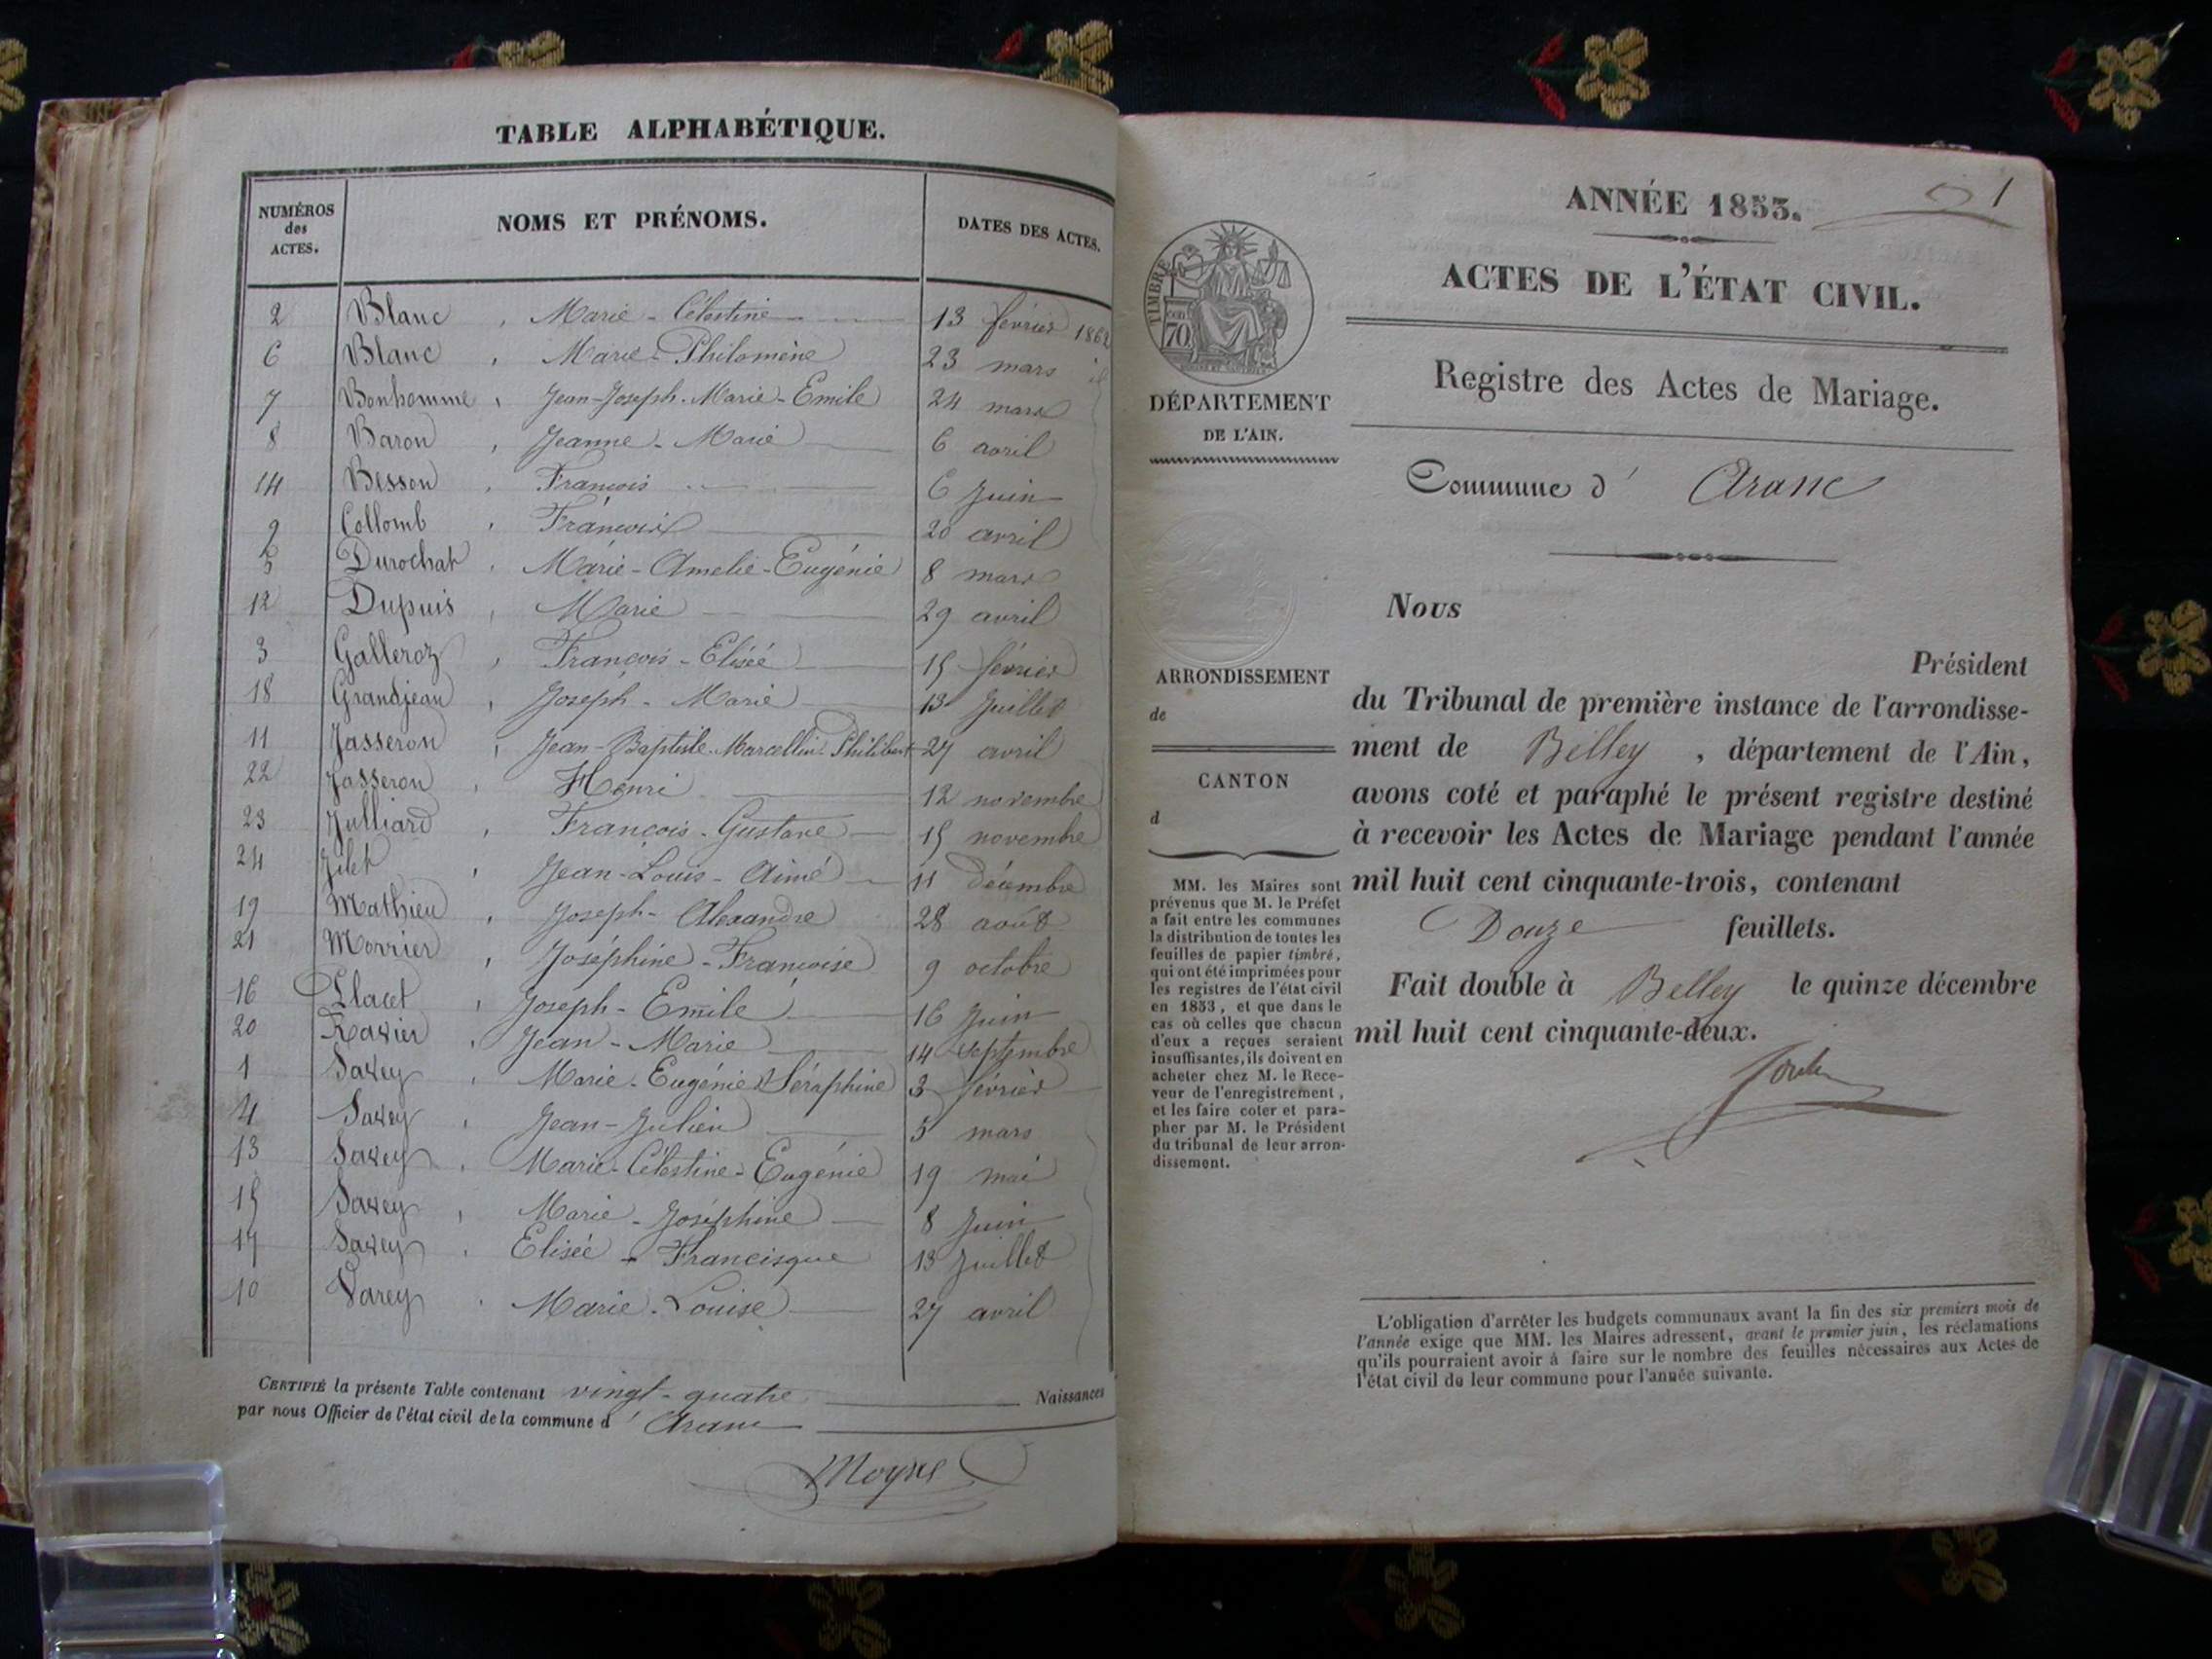 TABLE ALPHABÉTIQUE.
NUMÉROS des ACTES. NOMS ET PRÉNOMS. DATES DES ACTES.
2 Blanc, Marie-Célestine 13 février 1862
6 Blanc, Marie-Philomène 23 mars id
7 Bonhomme, Jean-Joseph-Marie-Emile 24 mars
8 Baron, Jeanne-Marie 6 avril
14 Besson, François 6 Juin
9 Collomb, François 20 avril
5 Durochat, Marie-Amelie-Eugénie 8 mars
12 Dupuis, Marie 29 avril
3 Galleroz, François-Elisée 15 février
18 Grandjean, Joseph-Marie 13 Juillet
11 Jasseron, Jean-Baptiste-Marcellin-Philibert 27 avril
22 Jasseron, Henri 12 novembre
23 Julliard, François-Gustave 15 novembre
24 Jilet, Jean-Louis-Aimé 11 décembre
19 Mathieu, Joseph-Alexandre 28 août
21 Morrier, Joséphine-Françoise 9 octobre
16 Placet, Joseph-Emile 16 Juin
20 Ravier, Jean-Marie 14 septembre
1 Savey, Marie-Eugénie Séraphine 3 février
4 Savey, Jean-Julien 5 mars
13 Savey, Marie-Célestine-Eugénie 19 mai
15 Savey, Marie-Joséphine 8 Juin
17 Savey, Elisée-Francisque 13 Juillet
10 Varey, Marie-Louise 27 avril
CERTIFIÉ la présente Table contenant vingt-quatre Naissances
par nous Officier de l'état civil de la commune d'Aranc
Moyne
1
ANNÉE 1853.
ACTES DE L'ÉTAT CIVIL.
Registre des Actes de Mariage.
Commune d'Aranc
TIMBRE
70
DÉPARTEMENT
DE L'AIN.
ARRONDISSEMENT
de
CANTON
d
MM. les Maires sont
prévenus que M. le Préfet
a fait entre les communes
la distribution de toutes les
feuilles de papier timbré,
qui ont été imprimées pour
les registres de l'état civil
en 1853, et que dans le
cas où celles que chacun
d'eux a reçues seraient
insuffisantes, ils doivent en
acheter chez M. le Rece-
veur de l'enregistrement,
et les faire coter et para-
pher par M. le Président
du tribunal de leur arron-
dissement.
Nous
Président
du Tribunal de première instance de l'arrondisse-
ment de Belley, département de l'Ain,
avons coté et paraphé le présent registre destiné
à recevoir les Actes de Mariage pendant l'année
mil huit cent cinquante-trois, contenant
Douze feuillets.
Fait double à Belley le quinze décembre
mil huit cent cinquante-deux.
L'obligation d'arrêter les budgets communaux avant la fin des six premiers mois de
l'année exige que MM. les Maires adressent, avant le premier juin, les réclamations
qu'ils pourraient avoir à faire sur le nombre des feuilles nécessaires aux Actes de
l'état civil de leur commune pour l'année suivante.